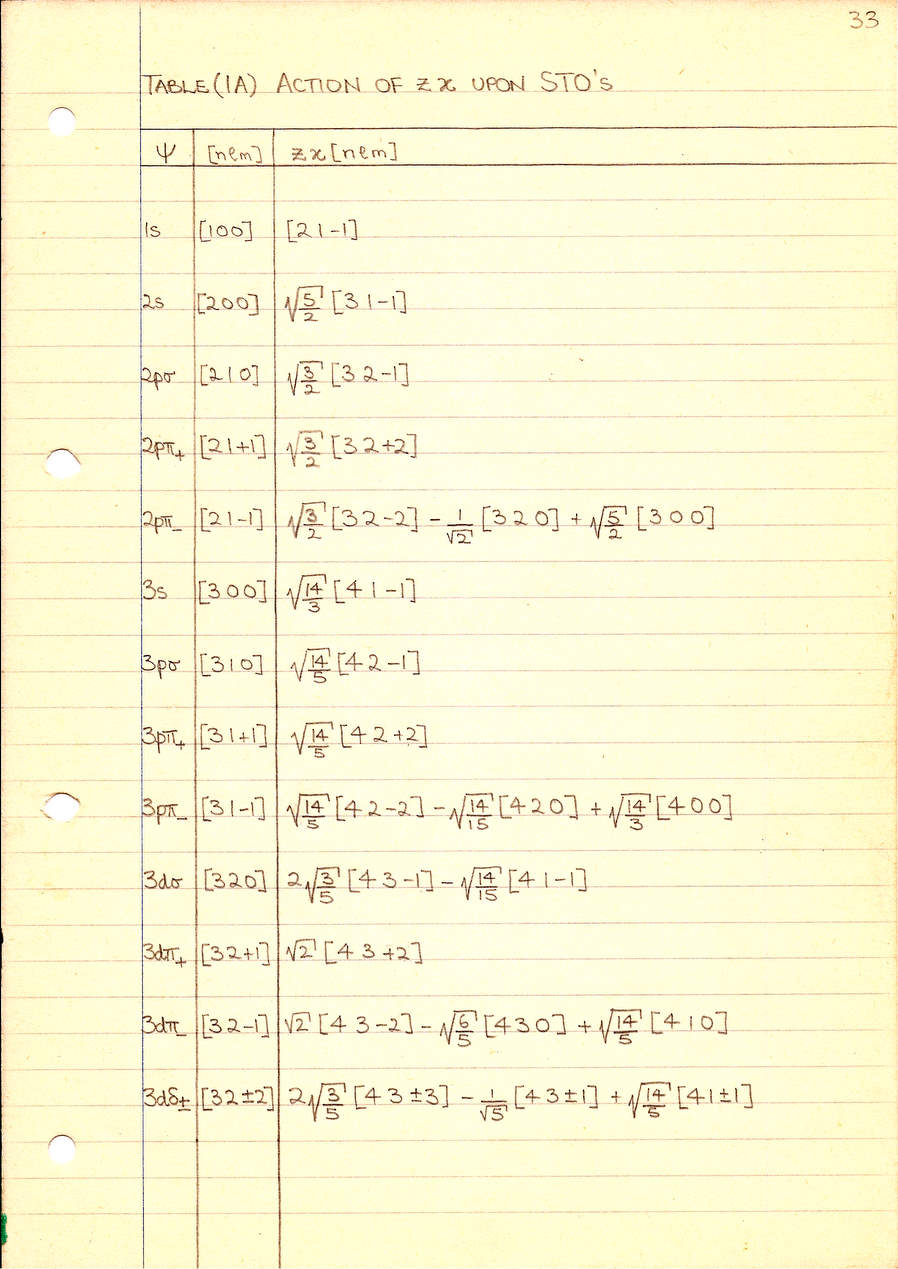 33
TABLE (1A) ACTION OF zx UPON STO'S
ψ [nlm] zx[nlm]
1s [100] [21-1]
2s [200] √(5/2) [31-1]
2pσ [210] √(3/2) [32-1]
2pπ₊ [21+1] √(3/2) [32+2]
2pπ₋ [21-1] √(3/2) [32-2] - 1/√2 [320] + √(5/2) [300]
3s [300] √(14/3) [41-1]
3pσ [310] √(14/5) [42-1]
3pπ₊ [31+1] √(14/5) [42+2]
3pπ₋ [31-1] √(14/5) [42-2] - √(14/15) [420] + √(14/3) [400]
3dσ [320] 2√(3/5) [43-1] - √(14/15) [41-1]
3dπ₊ [32+1] √2 [43+2]
3dπ₋ [32-1] √2 [43-2] - √(6/5) [430] + √(14/5) [410]
3dδ± [32±2] 2√(3/5) [43±3] - 1/√5 [43±1] + √(14/5) [41±1]